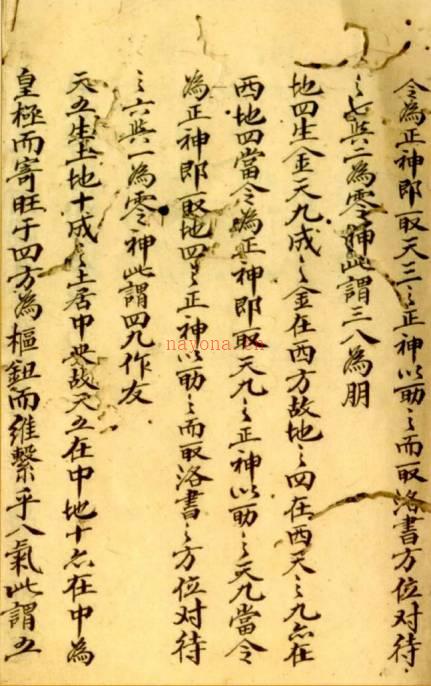 令為正神即取天三之正神以助之而取洛書方位对待
之七與二為零神此謂三八為朋
地四生金天九成之金在西方故地之四在西天之九亦在
西地四當令為正神即取天九之正神以助之天九當令
為正神即取地四之正神以助之而取洛書之方位对待
之六與一為零神此謂四九作友
天五生土地十成之土居中央故天五在中地十亦在中為
皇極而寄旺于四方為樞鈕而維繫乎八氣此謂五
nayona.cn